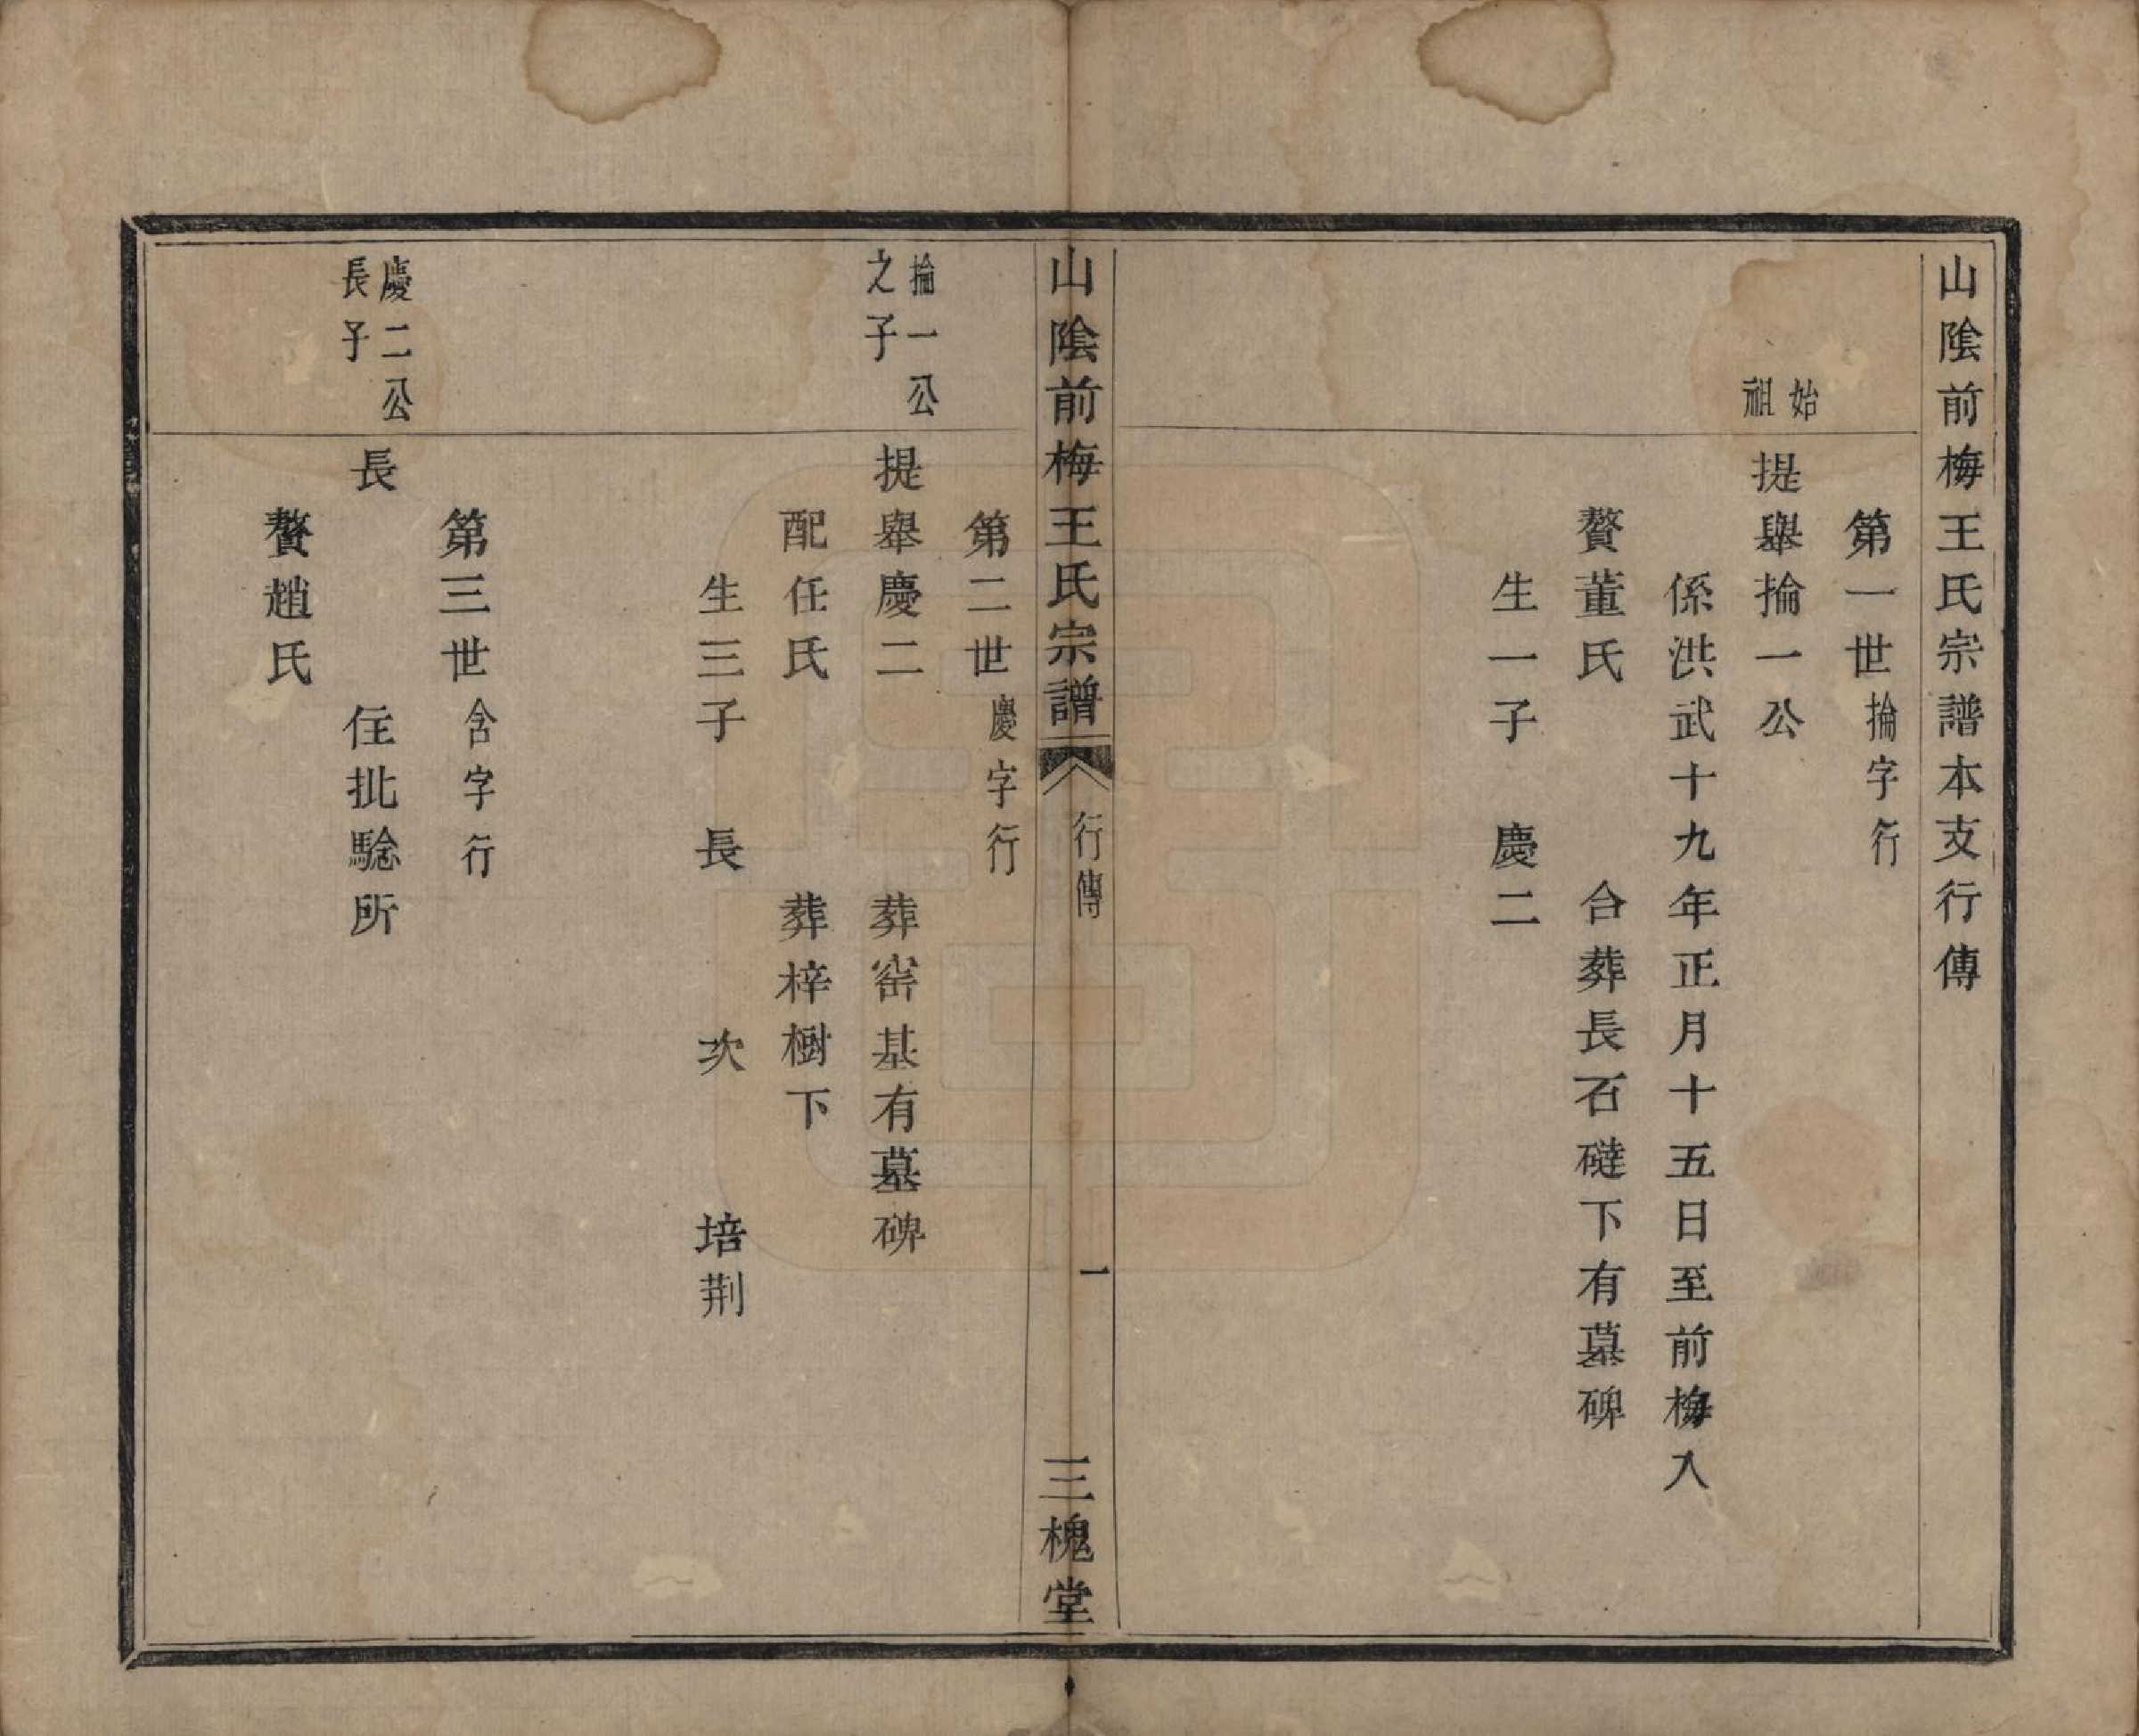 山陰前梅王氏宗譜本支行傳
第一世掄字行
始
祖
提舉掄一公
係洪武十九年正月十五日至前梅入
贅董氏　合葬長石磋下有墓碑
生一子　慶二
山陰前梅王氏宗譜　行傳　一　三槐堂
第二世慶字行
掄一公
之子
提舉慶二　葬窑基有墓碑
配任氏　葬梓樹下
生三子　長　次　培荆
第三世含字行
慶二公
長子
長　住批騐所
贅趙氏